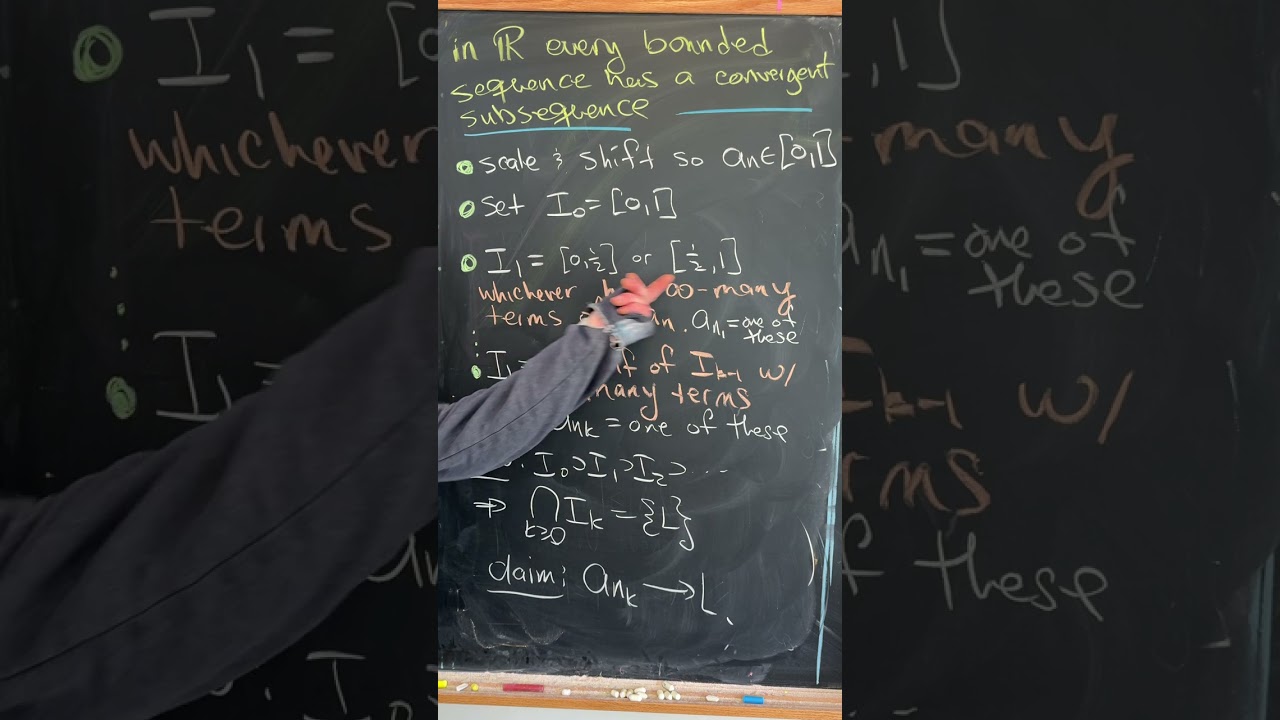 in ℝ every bounded
sequence has a convergent
subsequence
• scale & shift so aₙ∈[0,1]
• set I₀=[0,1]
• I₁ = [0,½] or [½,1]
whichever ∞-many
terms aₙ. aₙ₁ = one of
these
• I of Iₖ₋₁ w/
many terms
aₙₖ = one of these
I₀⊃I₁⊃I₂⊃...
⇒ ⋂ Iₖ = {L}
k≥0
claim: aₙₖ → L